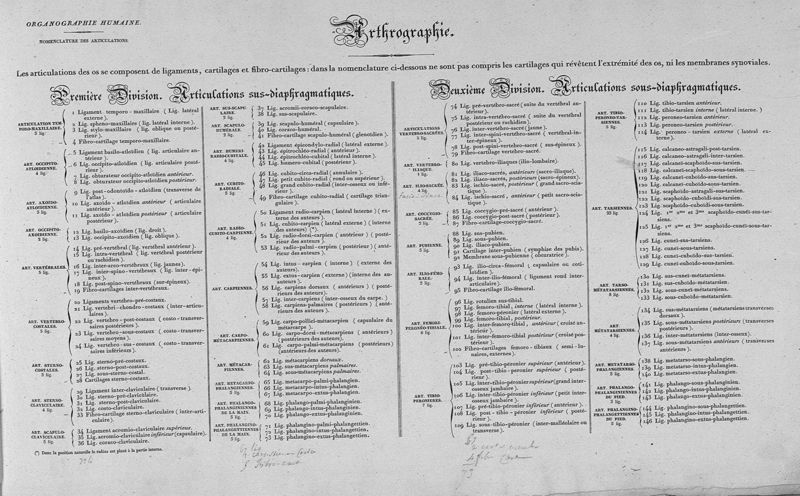 ORGANOGRAPHIE HUMAINE.
NOMENCLATURE DES ARTICULATIONS.
Arthrographie.
Les articulations des os se composent de ligaments, cartilages et fibro-cartilages: dans la nomenclature ci-dessous ne sont pas compris les cartilages qui révêtent l'extrémité des os, ni les membranes synoviales.
Première Division. Articulations sus-diaphragmatiques.
ARTICULATION TEM
PORO-MAXILLAIRE.
4 lig.
1 Ligament temporo-maxillaire (Lig. latéral
externe).
2 Lig. spheno-maxillaire (lig. latéral interne).
3 Lig. stylo-maxillaire (lig. oblique ou posté-
rieur).
4 Fibro-cartilage temporo-maxillaire.
ART. OCCIPITO-
ATLOÏDIENNE.
4 lig.
5 Ligament basilo-atloïdien (lig. articulaire an-
térieur).
6 Lig. occipito-atloïdien (lig. articulaire posté-
rieur).
7 Lig. obturateur occipito-atloïdien antérieur.
8 Lig. obturateur occipito-atloïdien postérieur.
ART. AXOÏDO-
ATLOÏDIENNE.
3 lig.
9 Lig. post-odontoïdo-atloïdien (transverse de
l'atlas).
10 Lig. axoïdo-atloïdien antérieur (articulaire
antérieur).
11 Lig. axoïdo-atloïdien postérieur (articulaire
postérieur).
ART. OCCIPITO-
AXOÏDIENNE.
12 Lig. basilo-axoïdien (lig. droit).
13 Lig. occipito-axoïdien (lig. oblique).
ART. VERTÉBRALES.
14 Lig. pré-vertébral (lig. vertébral antérieur).
15 Lig. intra-vertébral (lig. vertébral postérieur
ou rachidien).
16 Lig. inter-arcus-vertébraux (lig. jaunes).
17 Lig. inter-spino-vertébraux (lig. inter-épi-
neux).
18 Lig. post-spino-vertébraux (sur-épineux).
19 Fibro-cartilages inter-vertébraux.
ART. VERTEBRO-
COSTALES.
5 lig.
20 Ligaments vertebro-pré-costaux.
21 Lig. vertébri-chondro-costaux (inter-articu-
laires).
22 Lig. vertebro-post-costaux (costo-transver-
saires postérieurs).
23 Lig. vertebro-sous-costaux (costo-transver-
saires moyens).
24 Lig. vertebro-sus-costaux (costo-transver-
saires inférieurs).
ART. STERNO-
COSTALES.
25 Lig. sterno-pré-costaux.
26 Lig. sterno-post-costaux.
27 Lig. sous-sterno-costal.
28 Cartilages sterno-costaux.
ART. STERNO-
CLAVICULAIRE.
29 Ligament inter-claviculaire (transverse).
30 Lig. sterno-pré-claviculaire.
31 Lig. sterno-post-claviculaire.
32 Lig. costo-claviculaire.
33 Fibro-cartilage sterno-claviculaire (inter-arti-
culaire).
ART. SCAPULO-
CLAVICULAIRE.
3 lig.
34 Ligament acromio-claviculaire supérieur.
35 Lig. acromio-claviculaire inférieur (capsulaire).
36 Lig. coraco-claviculaire.
(*) Dans la position naturelle le radius est placé à la partie interne.
ART. SUS-SCAPU-
LAIRE.
37 Lig. acromii-coraco-scapulaire.
38 Lig. sus-scapulaire.
ART. SCAPULO-
HUMÉRALE.
3 lig.
39 Lig. scapulo-huméral (capsulaire).
40 Lig. coraco-huméral.
41 Fibro-cartilage scapulo-huméral (glenoïdien).
ART. HUMERI
RADIOCUBITALE.
4 lig.
42 Ligament épicondylo-radial (latéral externe).
43 Lig. épitrochléo-radial (antérieur).
44 Lig. épitrochléo-cubital (latéral interne).
45 Lig. humero-cubital (postérieur).
ART. CUBITO-
RADIALE.
46 Lig. cubito-circa-radial (annulaire).
47 Lig. petit cubito-radial (rond ou supérieur).
48 Lig. grand cubito-radial (inter-osseux ou infé-
rieur).
49 Fibro-cartilage cubito-radial (cartilage trian-
gulaire).
ART. RADIO-
CUBITO-CARPIENNE.
4 lig.
50 Ligament radio-carpien (latéral interne) (ex-
terne des auteurs).
51 Lig. cubito-carpien (latéral externe) (interne
des auteurs) (*).
52 Lig. radio-dorsi-carpien (antérieur) (posté-
rieur des auteurs).
53 Lig. radio-palmi-carpien (postérieur) (anté-
rieur des auteurs).
ART. CARPIENNE.
54 Lig. intus-carpien (interne) (externe des
auteurs).
55 Lig. extus-carpien (externe) (interne des au-
teurs).
56 Lig. carpiens dorsaux (antérieurs) (posté-
rieurs des auteurs).
57 Lig. inter-carpiens (inter-osseux du carpe).
58 Lig. carpiens-palmaires (postérieurs) (anté-
rieurs des auteurs).
ART. CARPO-
MÉTACARPIENNE.
59 Lig. carpo-pollici-métacarpien (capsulaire du
métacarpe).
60 Lig. carpo-dorsi-métacarpiens (antérieurs)
(postérieurs des auteurs).
61 Lig. carpo-palmi-métacarpiens (postérieurs)
(antérieurs des auteurs).
ART. MÉTACAR-
PIENNE.
62 Lig. métacarpiens dorsaux.
63 Lig. sus-métacarpiens palmaires.
64 Lig. sous-métacarpiens palmaires.
ART METACARPO
PHALANGIENNE.
65 Lig. metacarpo-palmi-phalangien.
66 Lig. metacarpo-intus-phalangien.
67 Lig. metacarpo-extus-phalangien.
ART. PHALANGO-
PHALANGINIENNES
DE LA MAIN.
68 Lig. phalango-palmi-phalanginien.
69 Lig. phalango-intus-phalanginien.
70 Lig. phalango-extus-phalanginien.
ART. PHALANGINO-
PHALANGETTIENNES
DE LA MAIN.
71 Lig. phalangino-palmi-phalangettien.
72 Lig. phalangino-intus-phalangettien.
73 Lig. phalangino-extus-phalangettien.
Deuxième Division. Articulations sous-diaphragmatiques.
ARTICULATIONS
VERTEBROSACRÉES.
74 Lig. pré-vertebro-sacré (suite du vertébral an-
térieur).
75 Lig. intra-vertebro-sacré (suite du vertébral
postérieur ou rachidien).
76 Lig. inter-vertebro-sacré (jaune).
77 Lig. inter-spini-vertebro-sacré (vertébral-in-
ter-épineux).
78 Lig. post-spini-vertebro-sacré (sus-épineux).
79 Fibro-cartilage vertebro-sacré.
ART. VERTEBRO-
ILIAQUE.
80 Lig. vertebro-iliaques (ilio-lombaire).
ART. ILIOSACRÉE.
81 Lig. iliaco-sacrés, antérieur (sacro-iliaque).
82 Lig. iliaco-sacrés, postérieur (sacro-épineux).
83 Lig. ischio-sacré, postérieur (grand sacro-scia-
tique).
84 Lig. ischio-sacré, antérieur (petit sacro-scia-
tique).
ART. COCCYGIO-
SACRÉE.
85 Lig. coccygio-pré-sacré (antérieur).
86 Lig. coccygio-post-sacré (postérieur).
87 Fibro-cartilage-coccygio-sacré.
ART. PUBIENNE.
88 Lig. sus-pubien.
89 Lig. sous-pubien.
90 Lig. iliaco-pubien.
91 Cartilage inter-pubien (symphise des pubis).
92 Membrane sous-pubienne (obturatrice).
ART. ILIO-FÉMO-
RALE.
93 Lig. ilio-circa-fémoral (capsulaire ou coti-
loïdien).
94 Lig. inter-ilio-fémoral (ligament rond inter-
articulaire).
95 Fibro-cartilage ilio-fémoral.
ART. FEMORI
PERONÉO-TIBIALE.
96 Lig. rotulien sus-tibial.
97 Lig. femoro-tibial, interne (latéral interne).
98 Lig. femoro-péronien (latéral externe).
99 Lig. femoro-tibial, postérieur.
100 Lig. inter-femoro-tibial, antérieur (croisé an-
térieur).
101 Lig. inter-femoro-tibial postérieur (croisé pos-
térieur).
102 Fibro-cartilages femoro-tibiaux (semi-lu-
naires, externes).
ART. TIBIO-
PERONIENNE.
7 lig.
103 Lig. pré-tibio-péronien supérieur (antérieur).
104 Lig. post-tibio-péronien supérieur (posté-
rieur).
105 Lig. inter-tibio-péronien supérieur (grand inter-
osseux jambaire).
106 Lig. inter-tibio-péronien inférieur (petit inter-
osseux jambaire).
107 Lig. pré-tibio-péronien inférieur (antérieur).
108 Lig. post-tibio-péronien inférieur (posté-
rieur).
109 Lig. sous-tibio-péronien (inter-malléolaire ou
transverse).
ART. TIBIO-
PERONEO-TAR-
SIENNE.
110 Lig. tibio-tarsien antérieur.
111 Lig. tibio-tarsien interne (latéral interne).
112 Lig. peroneo-tarsien antérieur.
113 Lig. peroneo-tarsien postérieur.
114 Lig. peroneo-tarsien externe (latéral ex-
terne).
ART. TARSIENNE.
115 Lig. calcaneo-astragali-post-tarsien.
116 Lig. calcaneo-astragali-inter-tarsien.
124 Lig. 1er 2me et 3me scaphoïdo-cunei-sus-tar-
sien.
125 Lig. 1er 2me et 3me scaphoïdo-cunei-sous-tar-
sien.
126 Lig. cunei-sus-tarsiens.
127 Lig. cunei-sous-tarsiens.
128 Lig. cunei-cuboïdo-sus-tarsien.
129 Lig. cunei-cuboïdo-sous-tarsien.
ART. TARSO-
MÉTATARSIENNE.
130 Lig. sus-cunei-métatarsiens.
131 Lig. sus-cuboïdo-métatarsien.
132 Lig. sous-cunei-métatarsien.
133 Lig. sous-cuboïdo-métatarsien.
ART.
MÉTATARSIENNE.
134 Lig. sus-métatarsiens (métatarsiens transverses
dorsaux).
135 Lig. sous-métatarsiens postérieurs (transverses
postérieurs).
136 Lig. inter-métatarsiens (inter-osseux).
137 Lig. sous-métatarsiens antérieurs (transverses
antérieurs).
ART. METATARSO-
PHALANGIENNE.
138 Lig. metatarso-sous-phalangien.
139 Lig. metatarso-intus-phalangien.
140 Lig. metatarso-extus-phalangien.
ART. PHALANGO-
PHALANGINIENNES
DU PIED.
141 Lig. phalango-sous-phalanginien.
142 Lig. phalango-intus-phalanginien.
143 Lig. phalango-extus-phalanginien.
ART. PHALANGINO-
PHALANGETTIENNES
DU PIED.
144 Lig. phalangino-sous-phalangettien.
145 Lig. phalangino-intus-phalangettien.
146 Lig. phalangino-extus-phalangettien.